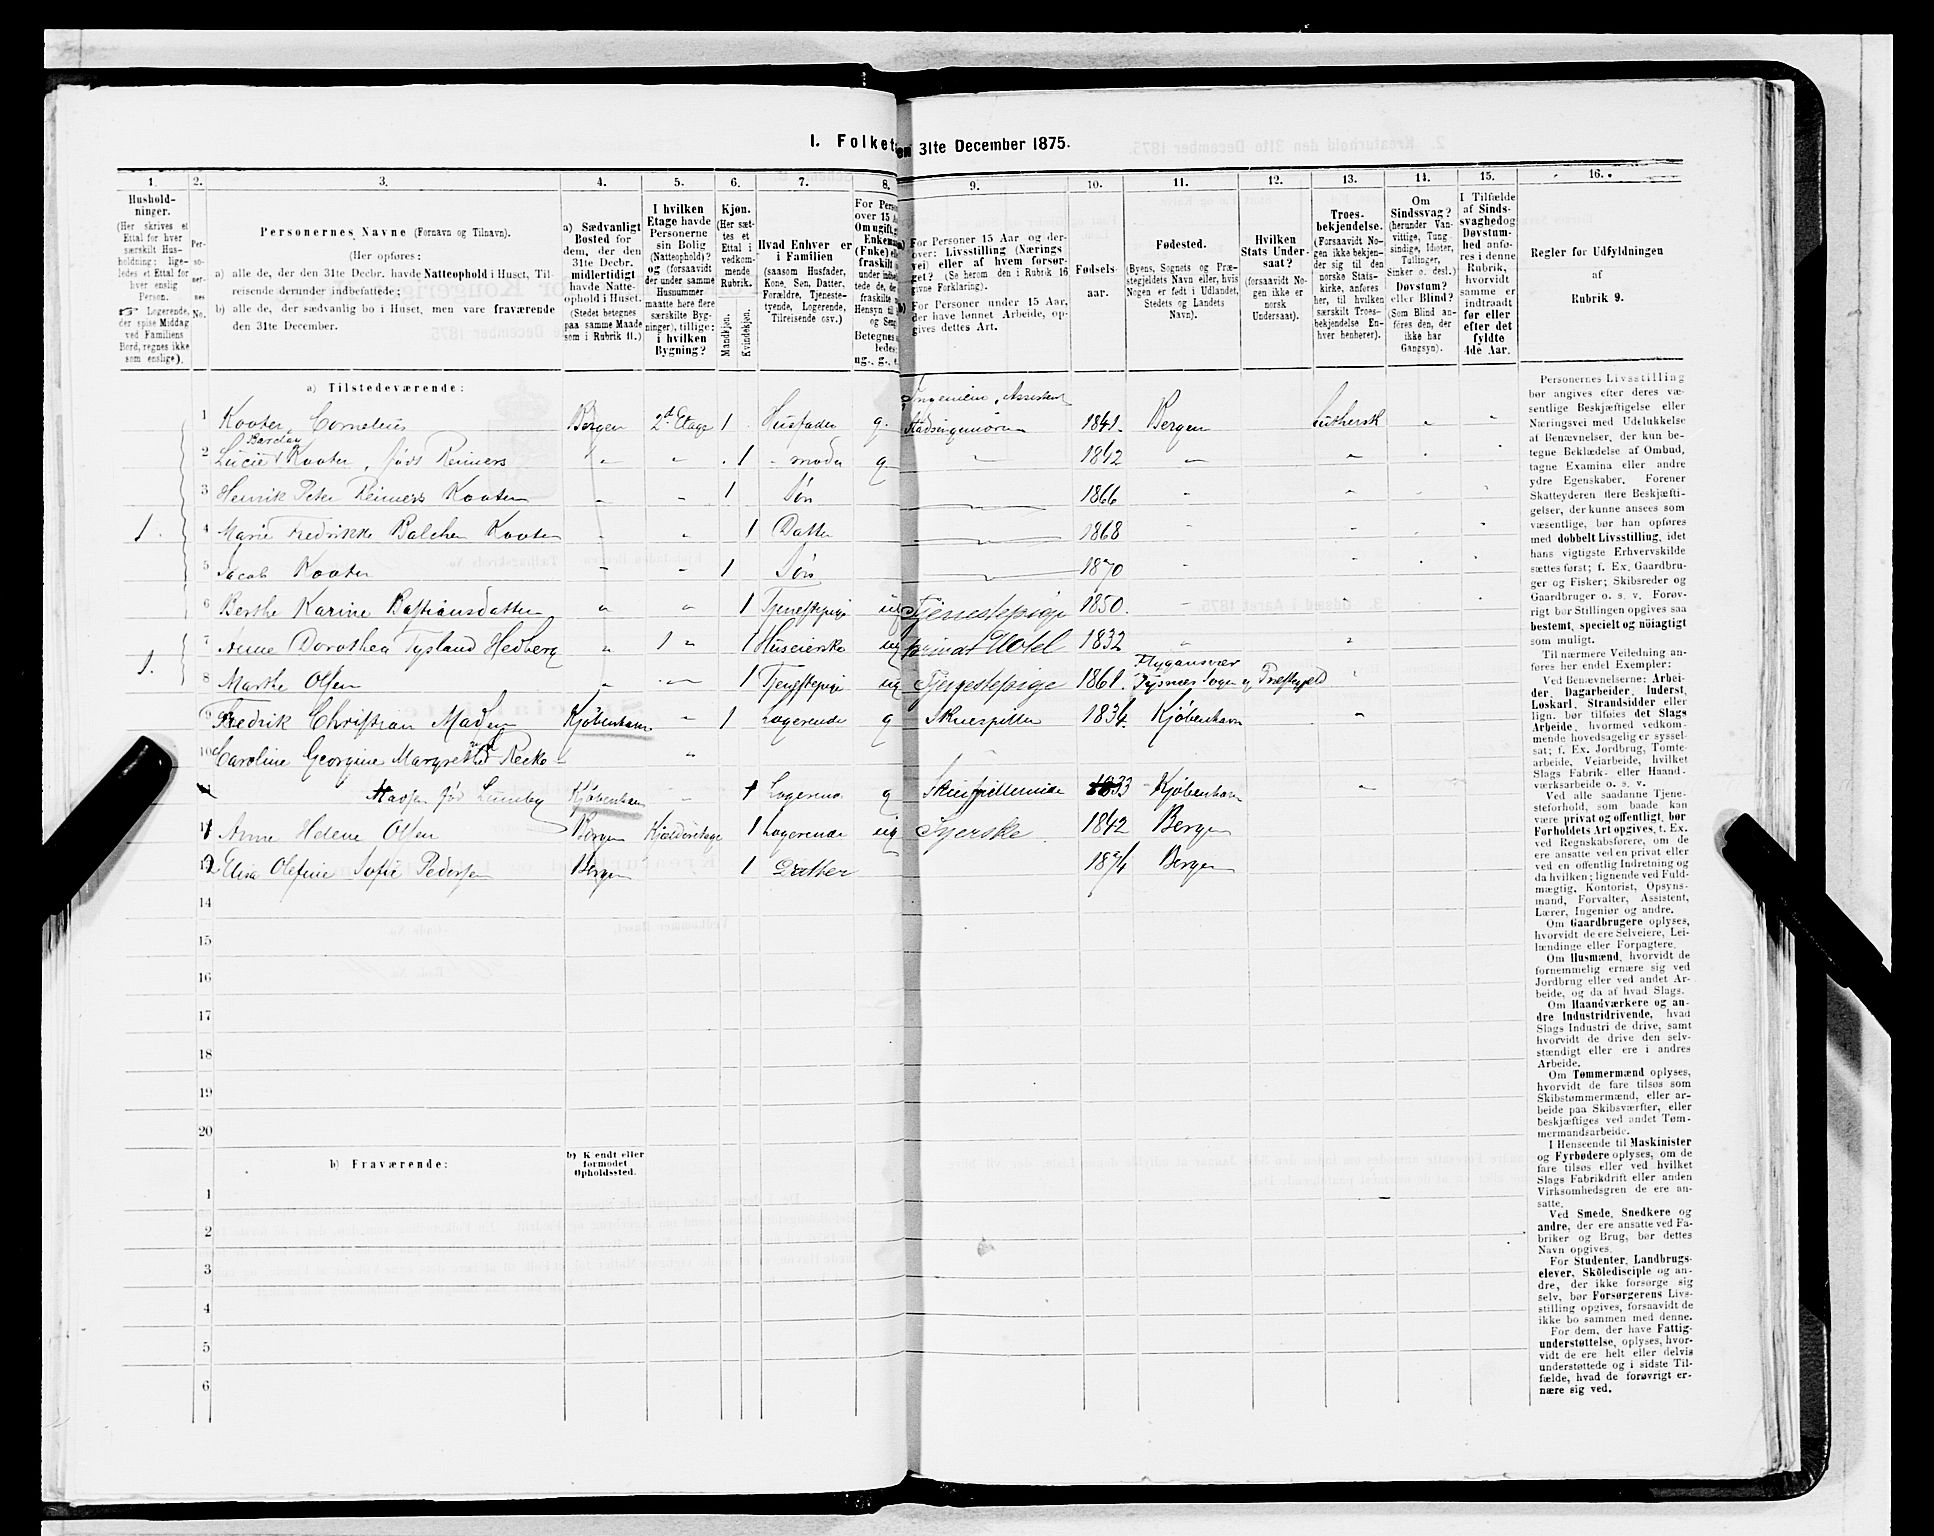 1. Folket
em 31te December 1875.
1. 2. 3. 4. 5. 6. 7. 8. 9. 10. 11. 12. 13. 14. 15. 16.
Hushold-
ninger.
(Her skrives et
Ettal for hver
særskilt Hus-
holdning; lige-
ledes et Ettal for
hver enslig
Person.
Logerende,
der spise Middag
ved Familiens
Bord, regnes ikke
som enslige).
Per-
so-
ner-
nes
No.
Personernes Navne (Fornavn og Tilnavn).
(Her opføres:
a) alle de, der den 31te Decbr. havde Natteophold i Huset, Til-
reisende derunder indbefattede;
b) alle de, der sædvanlig bo i Huset, men vare fraværende
den 31te December.
a) Sædvanligt
Bosted for
dem, der den
31te Decbr.
midlertidigt
havde Natte-
ophold i Huset.
(Stedet betegnes
paa samme Maade
som i Rubrik 11.)
I hvilken
Etage havde
Personerne
sin Bolig
(Natteophold)?
og (forsaavidt
der under samme
Husnummer
maatte høre flere
særskilte Byg-
ninger), tillige:
i hvilken
Bygning?
Kjøn.
(Her sæt-
tes et
Ettal i
vedkom-
mende
Rubrik.
Mandkjøn.
Kvindekjøn.
Hvad Enhver er
i Familien
(saasom Husfader,
Kone, Søn, Datter,
Forældre, Tjeneste-
tyende, Logerende,
Tilreisende osv.)
For Pers
over 15 A
Om ugift g
Enkem
(Enke) el
fraskilt
under indb
tede de, der
fraskilte
Hensyn til
og Seng
Betegnes s
ledes:
ug., g., e.
For Personer 15 Aar og der-
over: Livsstilling (Nærings
vei) eller af hvem forsør-
get? (Se herom den i Rubrik 16
givne Forklaring).
For Personer under 15 Aar,
der have lønnet Arbeide, op-
gives dettes Art.
Fødsels-
aar.
Fødested.
(Byens, Sognets og Præ-
stegjeldets Navn eller, hvis
Nogen er født i Udlandet,
Stedets og Landets
Navn).
Hvilken
Stats Under-
saat?
(forsaavidt No-
gen ikke er
norsk
Undersaat).
Troes-
bekjendelse.
(Forsaavidt No-
gen ikke bekjen-
der sig til den
norske Stats-
kirke, anføres
her, til hvilken
særskilt Troes-
bekjendelse En-
hver henhører).
Om
Sindssvag?
(herunder Van-
vittige, Tung-
sindige, Idioter,
Tullinger,
Sinker o. desl.)
Døvstum?
eller Blind?
(Som Blind an-
føres den, der
ikke har
Gangsyn).
I Tilfælde
af Sinds-
svaghed og
Døvstum-
hed anfø-
res i denne
Rubrik,
hvorvidt
samme er
indtraadt
før eller
efter det
fyldte
4de Aar.
Regler for Udfyldningen
af
Rubrik 9.
a) Tilstedeværende:
Ingeniør, Assistent
1 Koater, Cornelius Bergen 2d Etage 1 Husfader g. Stadsingeniøren 1841. Bergen Luthersk " "
Barclay
2 Lucie Koater, født Reimers " " 1 " moder g " 1842 " "
3 Henrik Peter Reimers Koater " " 1 Søn 1866 " "
1. 4 Marie Fredrikke Balchen Koater " " 1 Datter 1868 " "
5 Jacob Koater " " 1 Søn 1870 " "
6 Berthe Karine Bastiansdatter " " 1 Tjenestepige ug Tjenestepige 1850. " "
7 Anne Dorothea Tysland Hedberg " 1 " 1 Huseierske ug privat Hotel 1832 " "
Flygansvær
1. 8 Marthe Olsen " " 1 Tjenestepige ug Tjenestepige 1861. Tysnæs Sogn og Præstegjeld "
9 Fredrik Christian Madsen Kjøbenhavn " 1 Logerende g Skuespiller 1834. Kjøbenhavn "
10 Caroline Georgine Margrethe Recke "
Madsen fød Lumbye Kjøbenhavn " 1 Logerende g Skuespillerinde 1833 Kjøbenhavn "
11 Anne Helene Olsen Bergen Kjælderetage 1 Logerende ug Syerske 1842 Bergen
12 Elisa Olefine Sofie Pedersen Bergen 1 Datter 1874 Bergen
14
15
16
17
18
19
20
b) Fraværende:
b) Kjendt eller
formodet
Opholdssted.
1
2
3
4
5
6
Personernes Livsstilling
bør angives efter deres væ-
sentlige Beskjæftigelse eller
Næringsvei med Udelukkelse
af Benævnelser, der kun be-
tegne Beklædelse af Ombud,
tagne Examina eller andre
ydre Egenskaber. Forener
Skatteyderen flere Beskjæfti-
gelser, der kunne ansees som
væsentlige, bør han opføres
med dobbelt Livsstilling, idet
hans vigtigste Erhvervskilde
sættes først; f. Ex. Gaardbru-
ger og Fisker; Skibsreder og
Gaardbruger o. s. v. Forøv-
rigt bør Stillingen opgives saa
bestemt, specielt og nøiagtigt
som muligt.
Til nærmere Veiledning an-
føres her endel Exempler:
Ved Benævnelserne: Arbei-
der, Dagarbeider, Inderst,
Løskarl, Strandsidder eller
lign. bør tilføies det Slags
Arbeide, hvormed vedkom-
mende hovedsagelig er syssel-
sat; f. Ex. Jordbrug, Tomte-
arbeide, Veiarbeide, hvilket
Slags Fabrik- eller Haand-
værksarbeide o. s. v.
Ved alle saadanne Tjene-
steforhold, som baade kan
være privat og offentligt, bør
Forholdets Art opgives, t. Ex.
ved Regnskabsførere, om de
ere ansatte ved en privat eller
ved en offentlig Indretning og
da hvilken; lignende ved Fuld-
mægtig, Kontorist, Opsyns-
mand, Forvalter, Assistent,
Lærer, Ingeniør og andre.
Om Gaardbrugere oplyses,
hvorvidt de ere Selveiere, Lei-
lændinge eller Forpagtere.
Om Husmænd, hvorvidt de
fornemmelig ernære sig ved
Jordbrug eller ved andet Ar-
beide, og da af hvad Slags.
Om Haandværkere og an-
dre Industridrivende, hvad
Slags Industri de drive, samt
hvorvidt de drive den selv-
stændigt eller ere i andres
Arbeide.
Om Tømmermænd oplyses,
hvorvidt de fare tilsøs som
Skibstømmermænd, eller ar-
beide paa Skibsværfter, eller
beskjæftiges ved andet Tøm-
mermandsarbeide.
I Henseende til Maskinister
og Fyrbødere oplyses, om de
fare tilsøs eller ved hvilket
Slags Fabrikdrift eller anden
Virksomhedsgren de ere an-
satte.
Ved Smede, Snedkere og
andre, der ere ansatte ved Fa-
briker og Brug, bør dettes
Navn opgives.
For Studenter, Landbrugs-
elever, Skoledisciple og an-
dre, der ikke forsørge sig
selv, bør Forsørgerens Livs-
stilling opgives, forsaavidt de
ikke bo sammen med denne.
For dem, der have Fattig-
understøttelse, oplyses, hvor-
vidt de ere helt eller delvis
understøttede og i sidste Til-
fælde, hvad de forøvrigt er-
nære sig ved.